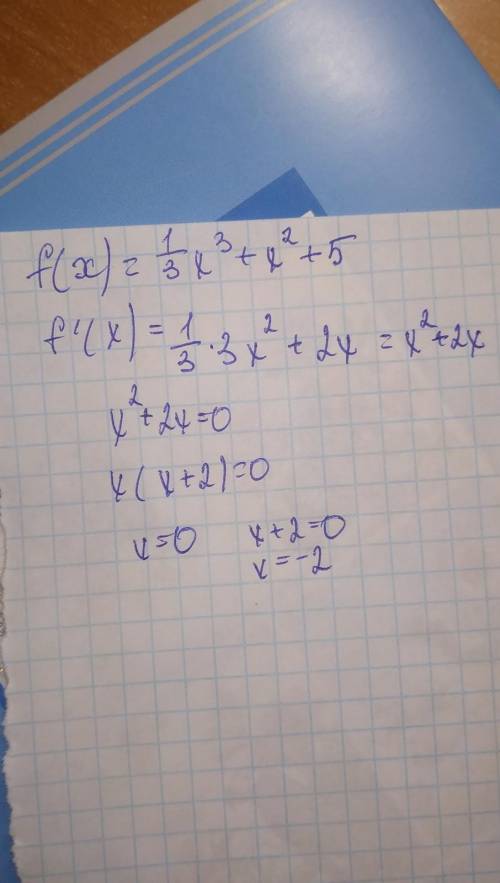 f(x) = 1/3 x³ + x² + 5
f'(x) = 1/3 · 3x² + 2x = x² + 2x
x² + 2x = 0
x(x+2) = 0
x = 0 x + 2 = 0
x = -2